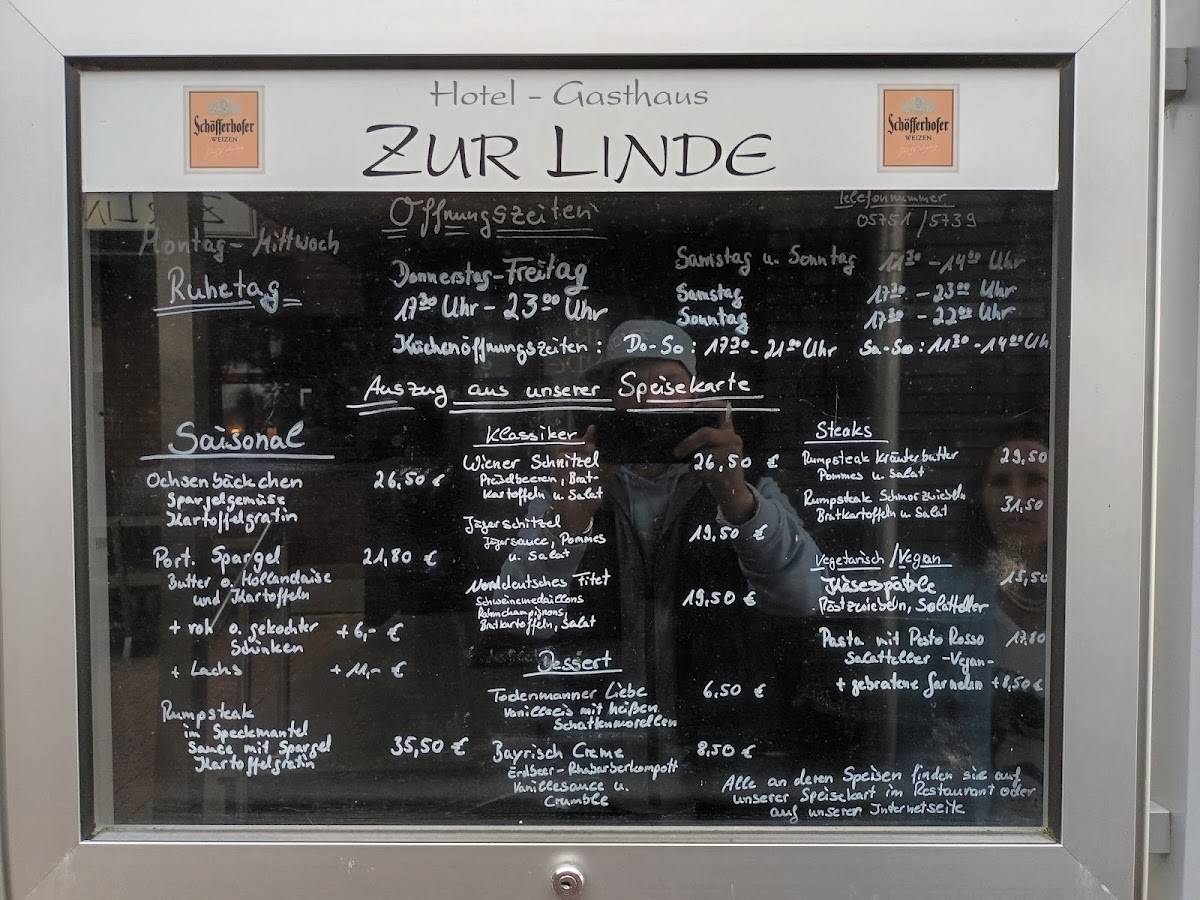 Hotel - Gasthaus
ZUR LINDE
Schöfferhofer
WEIZEN
Schöfferhofer
WEIZEN
Öffnungszeiten
Telefonnummer
05751/5739
Montag - Mittwoch
Ruhetag
Donnerstag - Freitag
17³⁰ Uhr - 23⁰⁰ Uhr
Samstag u. Sonntag 11³⁰ - 14⁰⁰ Uhr
Samstag 17³⁰ - 23⁰⁰ Uhr
Sonntag 17³⁰ - 22⁰⁰ Uhr
Küchenöffnungszeiten: Do-So: 17³⁰ - 21⁰⁰ Uhr Sa-So: 11³⁰ - 14⁰⁰ Uh
Auszug aus unserer Speisekarte
Saisonal
Ochsenbäckchen 26,50 €
Spargelgemüse
Kartoffelgratin
Port. Spargel 21,80 €
Butter o. Hollandaise
und Kartoffeln
+ roh o. gekochter +6,- €
Schinken
+ Lachs +11,- €
Rumpsteak
im Speckmantel
Sauce mit Spargel 35,50 €
Kartoffelgratin
Klassiker
Wiener Schnitzel 26,50 €
Preiselbeeren, Brat-
kartoffeln u. Salat
Jägerschitzel
Jägersauce, Pommes 19,50 €
u. Salat
Norddeutsches Filet
Schweinemedaillons 19,50 €
Rahmchampignons,
Bratkartoffeln, Salat
Dessert
Todenmanner Liebe 6,50 €
Vanilleeis mit heißen
Schattenmorellen
Bayrisch Creme 8,50 €
Erdbeer-Rhabarberkompott
Vanillesauce u.
Crumble
Steaks
Rumpsteak Kräuterbutter 29,50
Pommes u. Salat
Rumpsteak Schmorzwiebeln 31,50
Bratkartoffeln u. Salat
Vegetarisch/Vegan
Käsespätzle 15,50
Röstzwiebeln, Salatteller
Pasta mit Pesto Rosso 17,80
Salatteller -Vegan-
+ gebratene Garnelen +8,50 €
Alle an deren Speisen finden sie auf
unserer Speisekart im Restaurant oder
auf unseren Internetseite